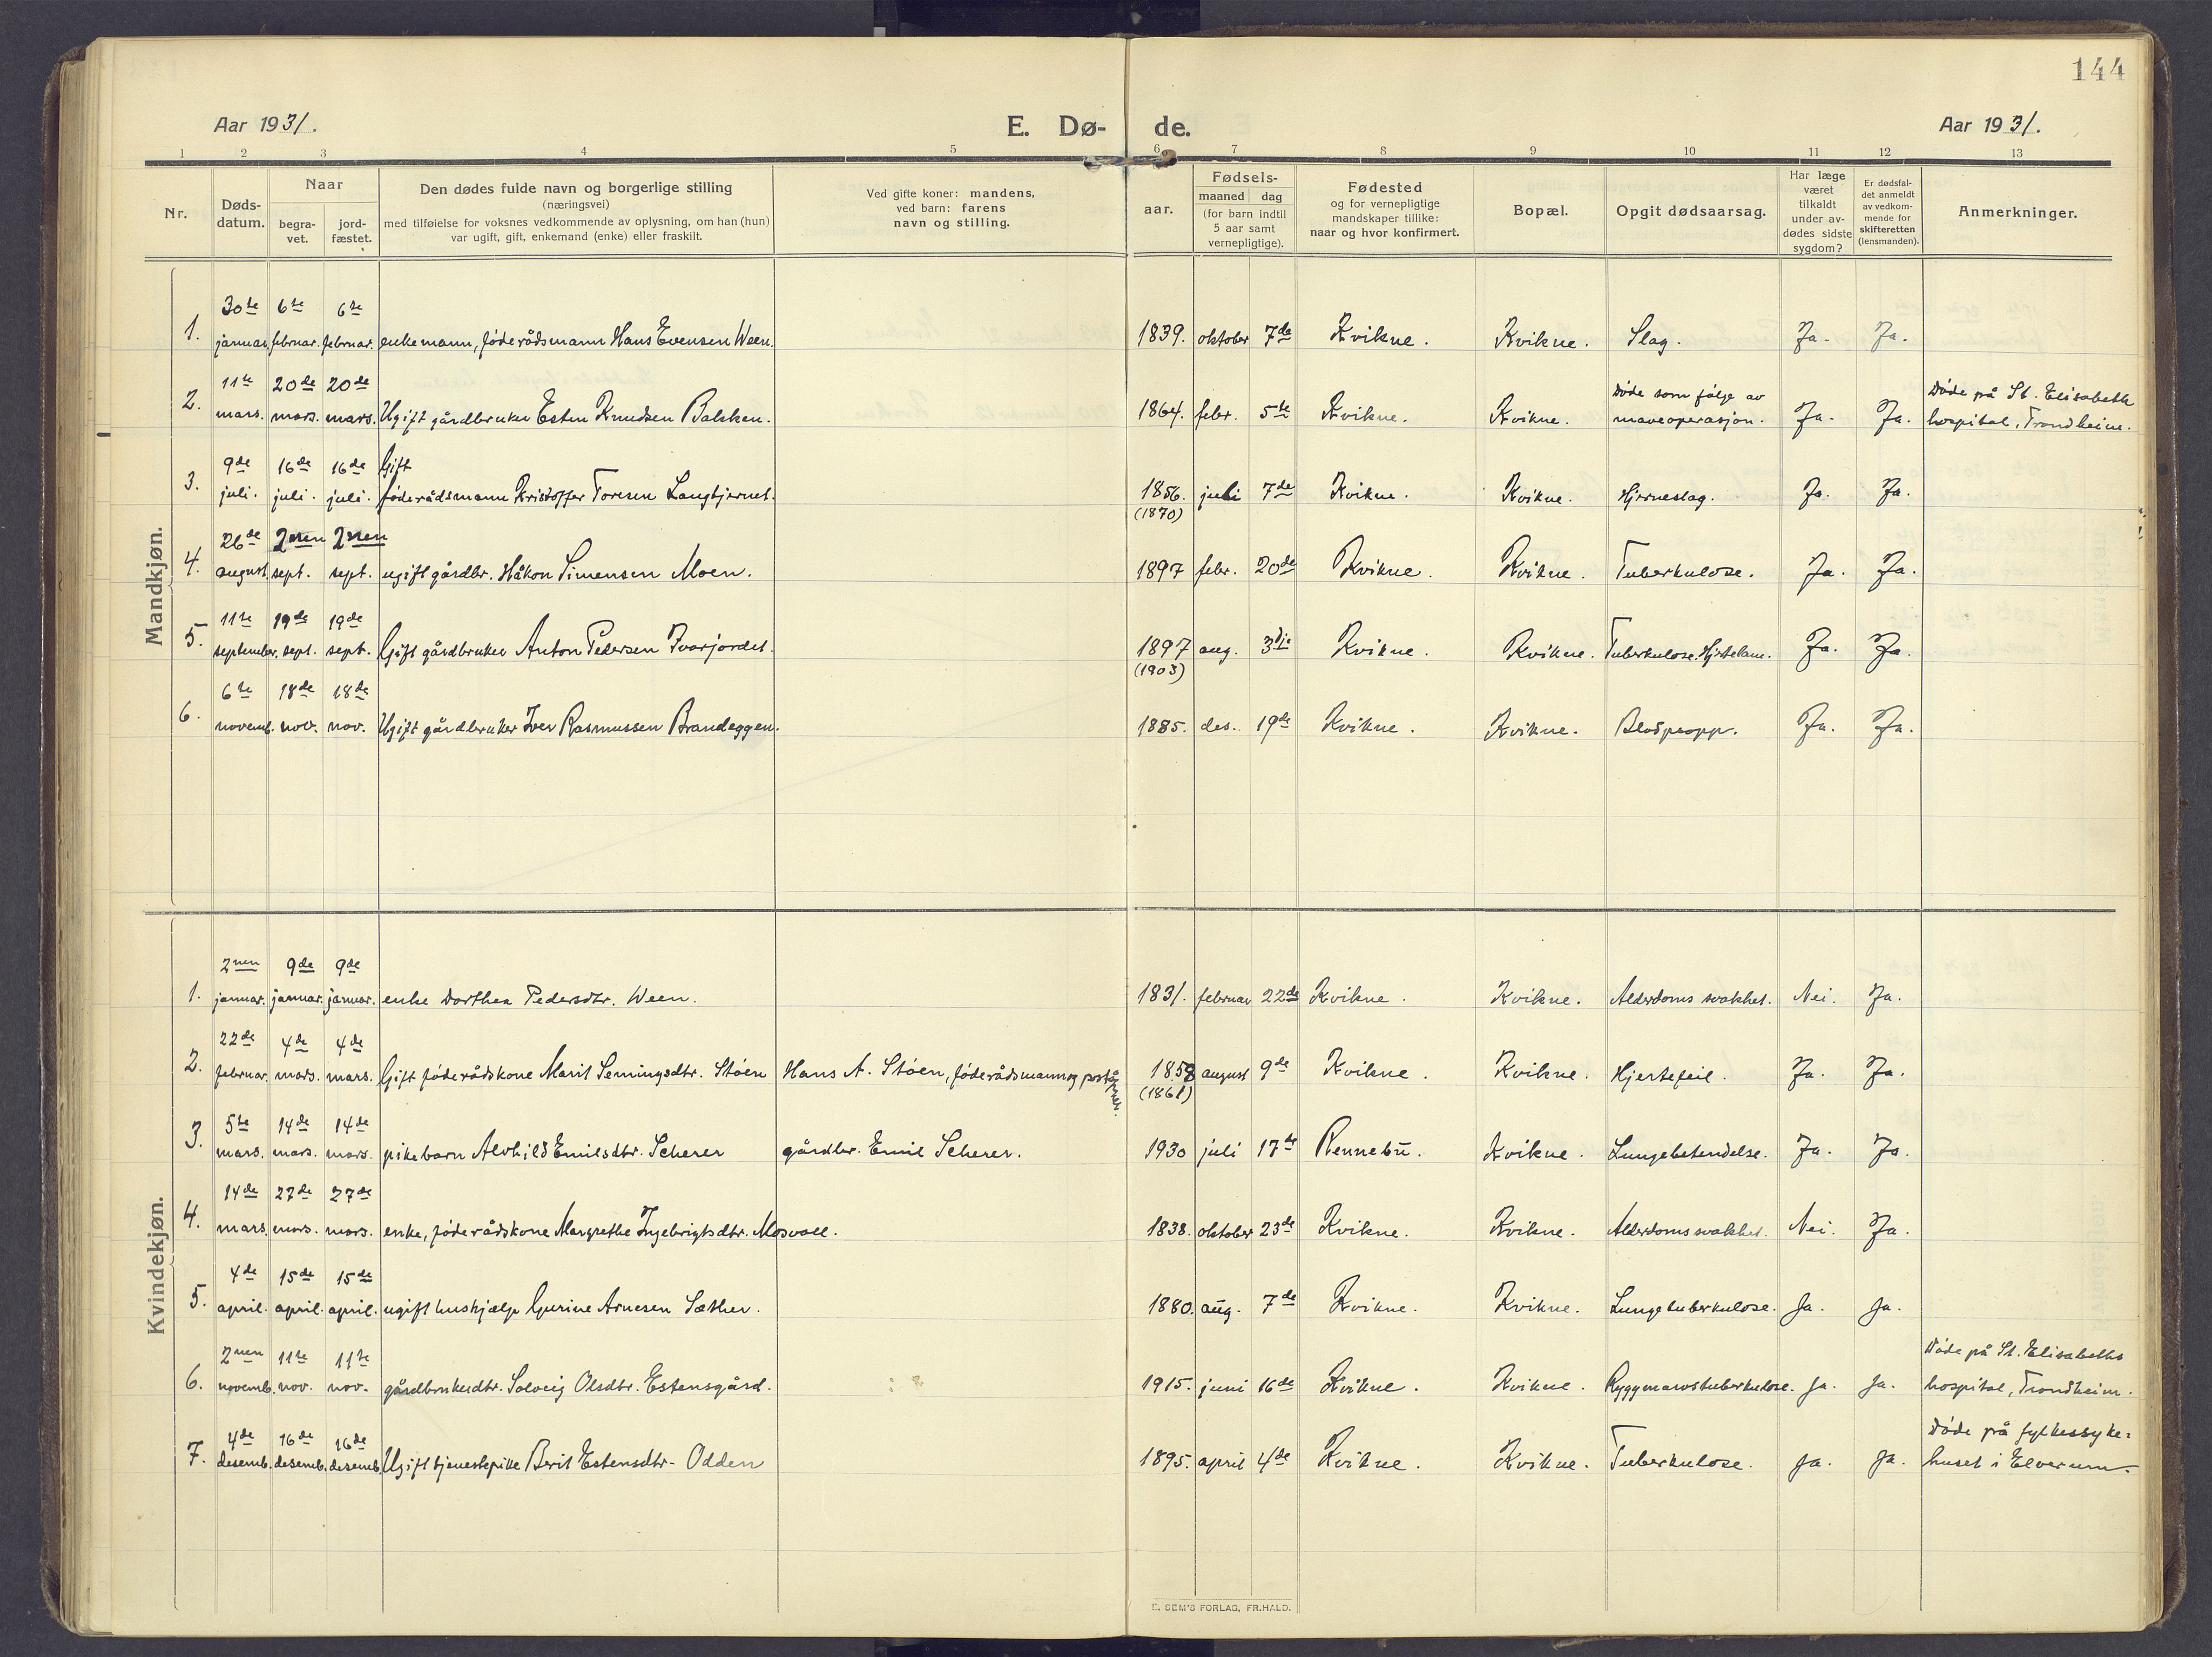 144
Aar 1931.
E. Dø-
de.
Aar 1931.
1 2 3 4 5 6 7 8 9 10 11 12 13
Nr.
Døds-
datum.
Naar
begra-
vet.
jord-
fæstet.
Den dødes fulde navn og borgerlige stilling
(næringsvei)
med tilføielse for voksnes vedkommende av oplysning, om han (hun)
var ugift, gift, enkemand (enke) eller fraskilt.
Ved gifte koner: mandens,
ved barn: farens
navn og stilling.
aar.
Fødsels-
maaned dag
(for barn indtil
5 aar samt
vernepligtige).
Fødested
og for vernepligtige
mandskaper tillike:
naar og hvor konfirmert.
Bopæl.
Opgit dødsaarsag.
Har læge
været
tilkaldt
under av-
dødes sidste
sygdom?
Er dødsfal-
det anmeldt
av vedkom-
mende for
skifteretten
(lensmanden).
Anmerkninger.
Mandkjøn.
30te 6te 6te
1. januar. februar. februar. enkemann, føderådsmann Hans Evensen Ween. 1839. oktober 7de Kvikne. Kvikne. Slag. Ja. Ja.
11te 20de 20de Døde som følge av Døde på St. Elisabeth
2. mars. mars. mars. Ugift gårdbruker Esten Knudsen Balsken. 1864. febr. 5te Kvikne. Kvikne. maveoperasjon. Ja. Ja. hospital, Trondheim.
9de 16de 16de Gift
3. juli. juli. juli. føderådsmann Kristoffer Toresen Langtjernet. 1856. juli 7de Kvikne. Kvikne. Hjerneslag. Ja. Ja.
(1870)
26de 2nen 2nen
4. august. sept. sept. ugift gårdbr. Håkon Simensen Moen. 1897 febr. 20de Kvikne. Kvikne. Tuberkulose. Ja. Ja.
11te 19de 19de
5. september. sept. sept. Gift gårdbruker Anton Pedersen Ivarjordet. 1897 aug. 3dje Kvikne. Kvikne. Tuberkulose. Ja. Ja.
(1903)
6te 18de 18de
6. novemb. nov. nov. Ugift gårdbruker Iver Rasmussen Brandeggen. 1885. des. 19de Kvikne. Kvikne. Blodpropp. Ja. Ja.
Kvindekjøn.
2nen 9de 9de
1. januar. januar. januar. enke Dorthea Pedersdtr. Ween. 1831. februar 22de Kvikne. Kvikne. Alderdoms svakhet. Nei. Ja.
22de 4de 4de
2. februar. mars. mars. Gift føderådskone Marit Semingsdtr. Støen Hans A. Støen, føderådsmann og poståpner. 1858 august 9de Kvikne. Kvikne. Hjertefeil. Ja. Ja.
(1861)
5te 14de 14de
3. mars. mars. mars. pikebarn Alvhild Emilsdtr. Scherer gårdbr. Emil Scherer. 1930 juli 17de Rennebu. Kvikne. Lungebetendelse. Ja. Ja.
14de 27de 27de
4. mars. mars. mars. enke, føderådskone Margrethe Ingebrigtsdtr. Mosvoll. 1838. oktober 23de Kvikne. Kvikne. Alderdoms svakhet. Nei. Ja.
4de 15de 15de
5. april. april. april. ugift hushjælp Gurine Arnesen Sæther. 1880. aug. 7de Kvikne. Kvikne. Lungetuberkulose. Ja. Ja.
2nen 11te 11te Døde på St. Elisabeths
6. novemb. nov. nov. gårdbrukerdtr. Solveig Olsdtr. Estensgård. 1915. juni 16de Kvikne. Kvikne. Ryggmarvstuberkulose. Ja. Ja. hospital, Trondheim.
4de 16de 16de Døde på fylkessyke=
7. desemb. desemb. desemb. Ugift tjenestepike Berit Estensdtr. Odden 1895. april 4de Kvikne. Kvikne. Tuberkulose. Ja. Ja. huset i Elverum.
E. SEM'S FORLAG, FR.HALD.